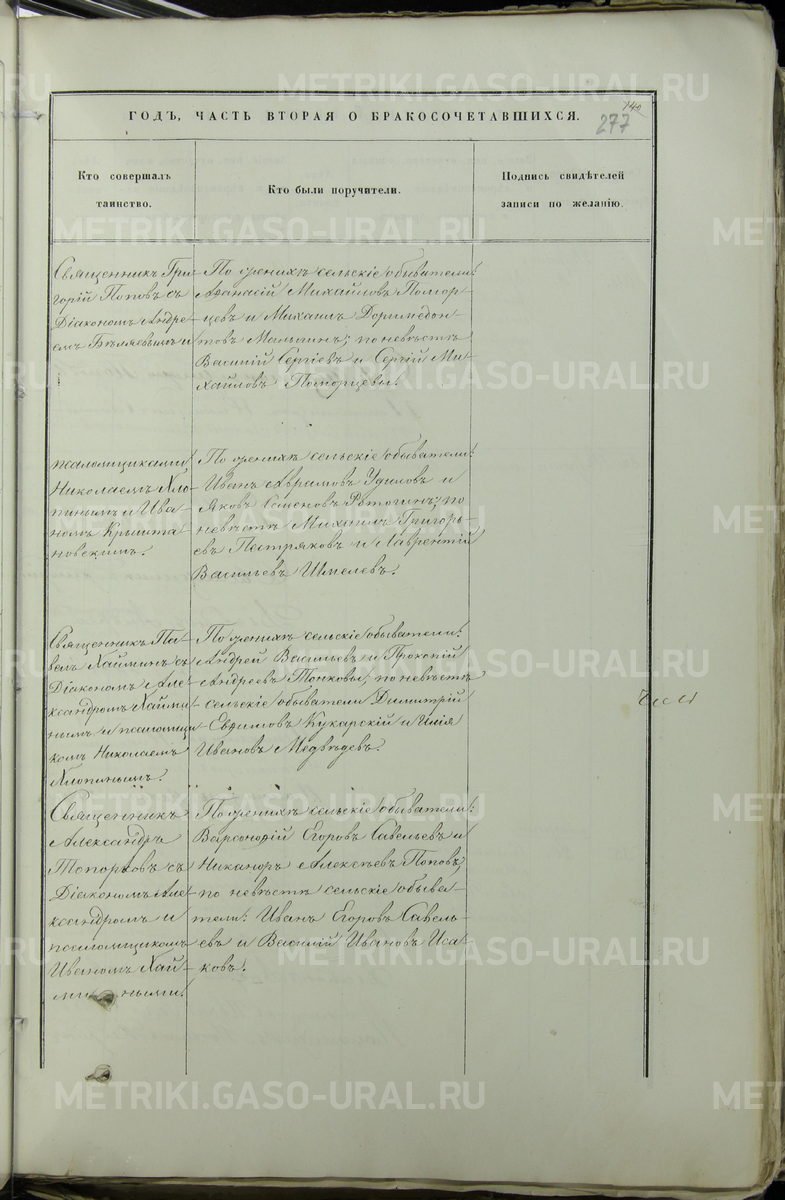 140
277
ГОДЪ, ЧАСТЬ ВТОРАЯ О БРАКОСОЧЕТАВШИХСЯ.
Кто совершалъ
таинство.
Кто были поручители.
Подпись свидѣтелей
записи по желанію.
Священникъ Гри-
горій Поповъ съ
Діакономъ Андре-
емъ Бѣляевымъ и
По женихѣ сельскіе обыватели:
Афанасій Михайловъ Помор-
цевъ и Михаилъ Доримедон-
товъ; по невѣстѣ
Василій Сергіевъ и Сергій Ми-
хайловъ Поморцевы.
псаломщиками
Николаемъ Хло-
пинымъ и Ива-
номъ Крышта-
новскимъ.
По женихѣ сельскіе обыватели:
Иванъ Аврамовъ Удиловъ и
Яковъ Семеновъ; по
невѣстѣ Михаилъ Григорь-
евъ Пестряковъ и Лаврентій
Васильевъ Шмелевъ.
Священникъ Па-
велъ Хайминъ съ
Діакономъ Але-
ксандромъ Хайми-
нымъ и псаломщи-
комъ Николаемъ
Хлопинымъ.
По женихѣ сельскіе обыватели:
Андрей Васильевъ и Прокопій
Андреевъ Тонковы; по невѣстѣ
сельскіе обыватели Димитрій
Евфимовъ Кукарскій и Илія
Ивановъ Медвѣдевъ.
Священникъ
Александръ
Топорковъ съ
Діакономъ Але-
ксандромъ и
псаломщикомъ
Иваномъ Хай-
миными.
По женихѣ сельскіе обыватели:
Варсонофій Егоровъ Савельевъ и
Никаноръ Алексѣевъ Поповъ,
по невѣстѣ сельскіе обыва-
тели: Иванъ Егоровъ Савель-
евъ и Василій Ивановъ Иса-
ковъ.
METRIKI.GASO-URAL.RU